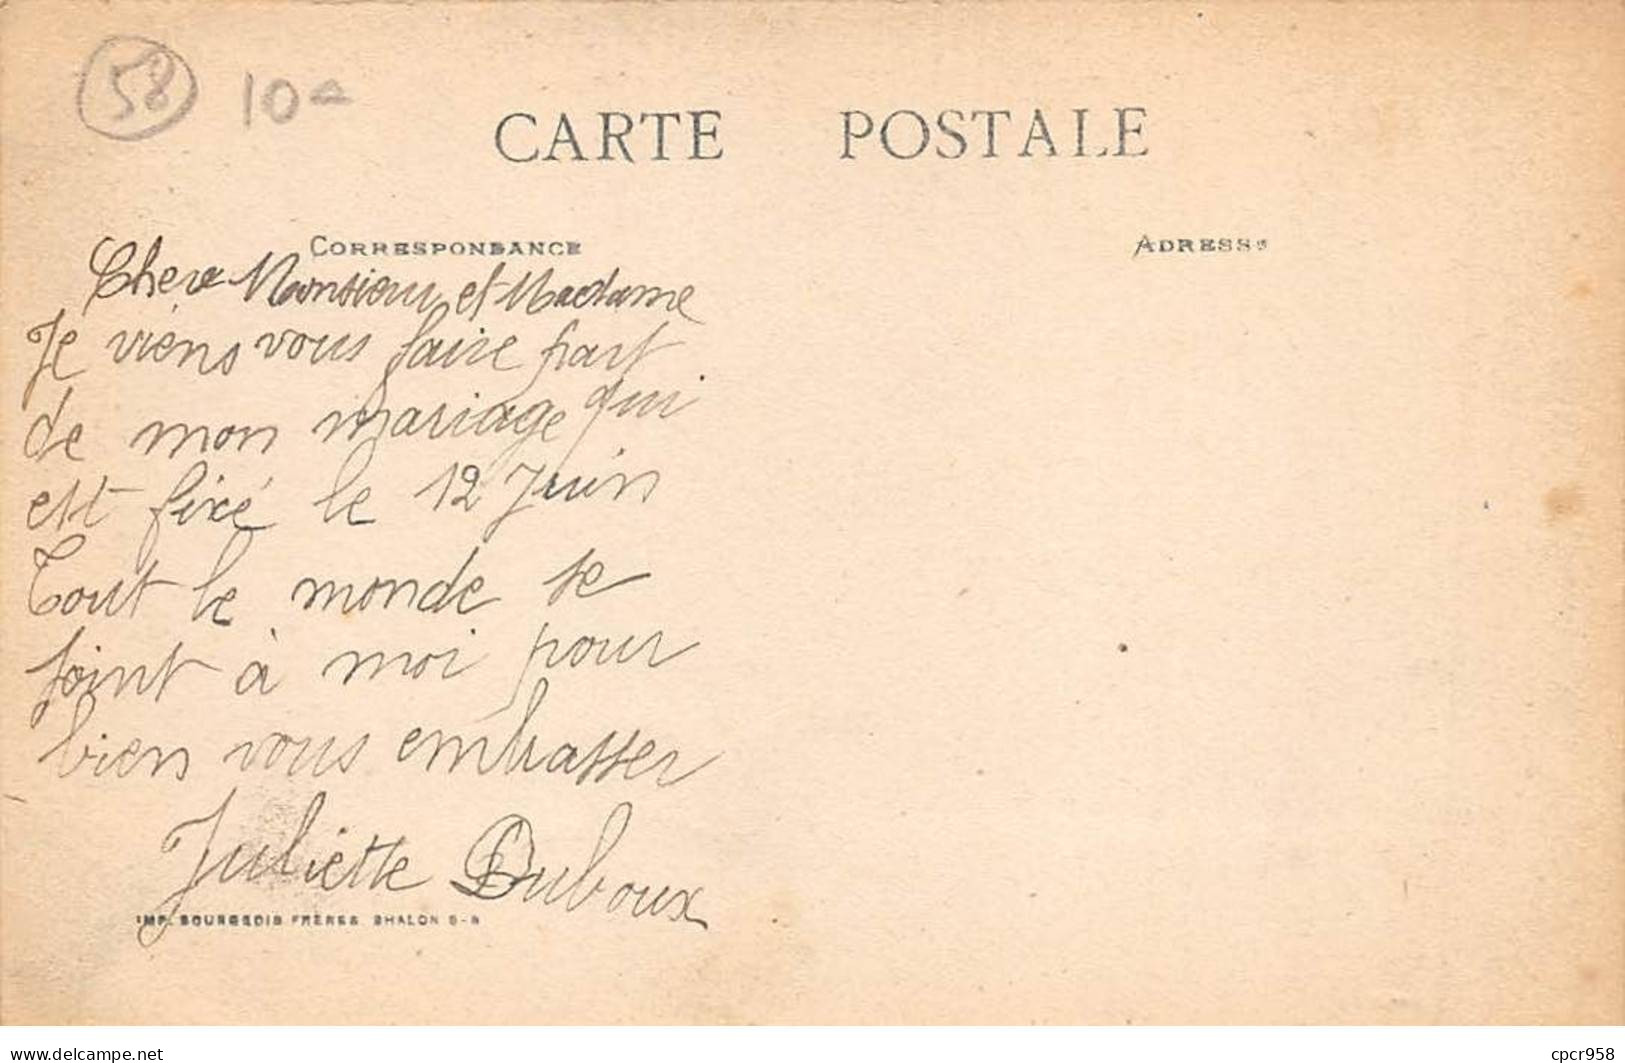 58 10
CARTE POSTALE
CORRESPONDANCE
ADRESSE
Chere Monsieur et Madame
Je viens vous faire part
de mon mariage qui
est fixé le 12 Juin
Tout le monde se
joint à moi pour
bien vous embrasser
Juliette Duboux
IMP. BOURGEOIS FRÈRES CHALON S-S
www.delcampe.net
cpcr958